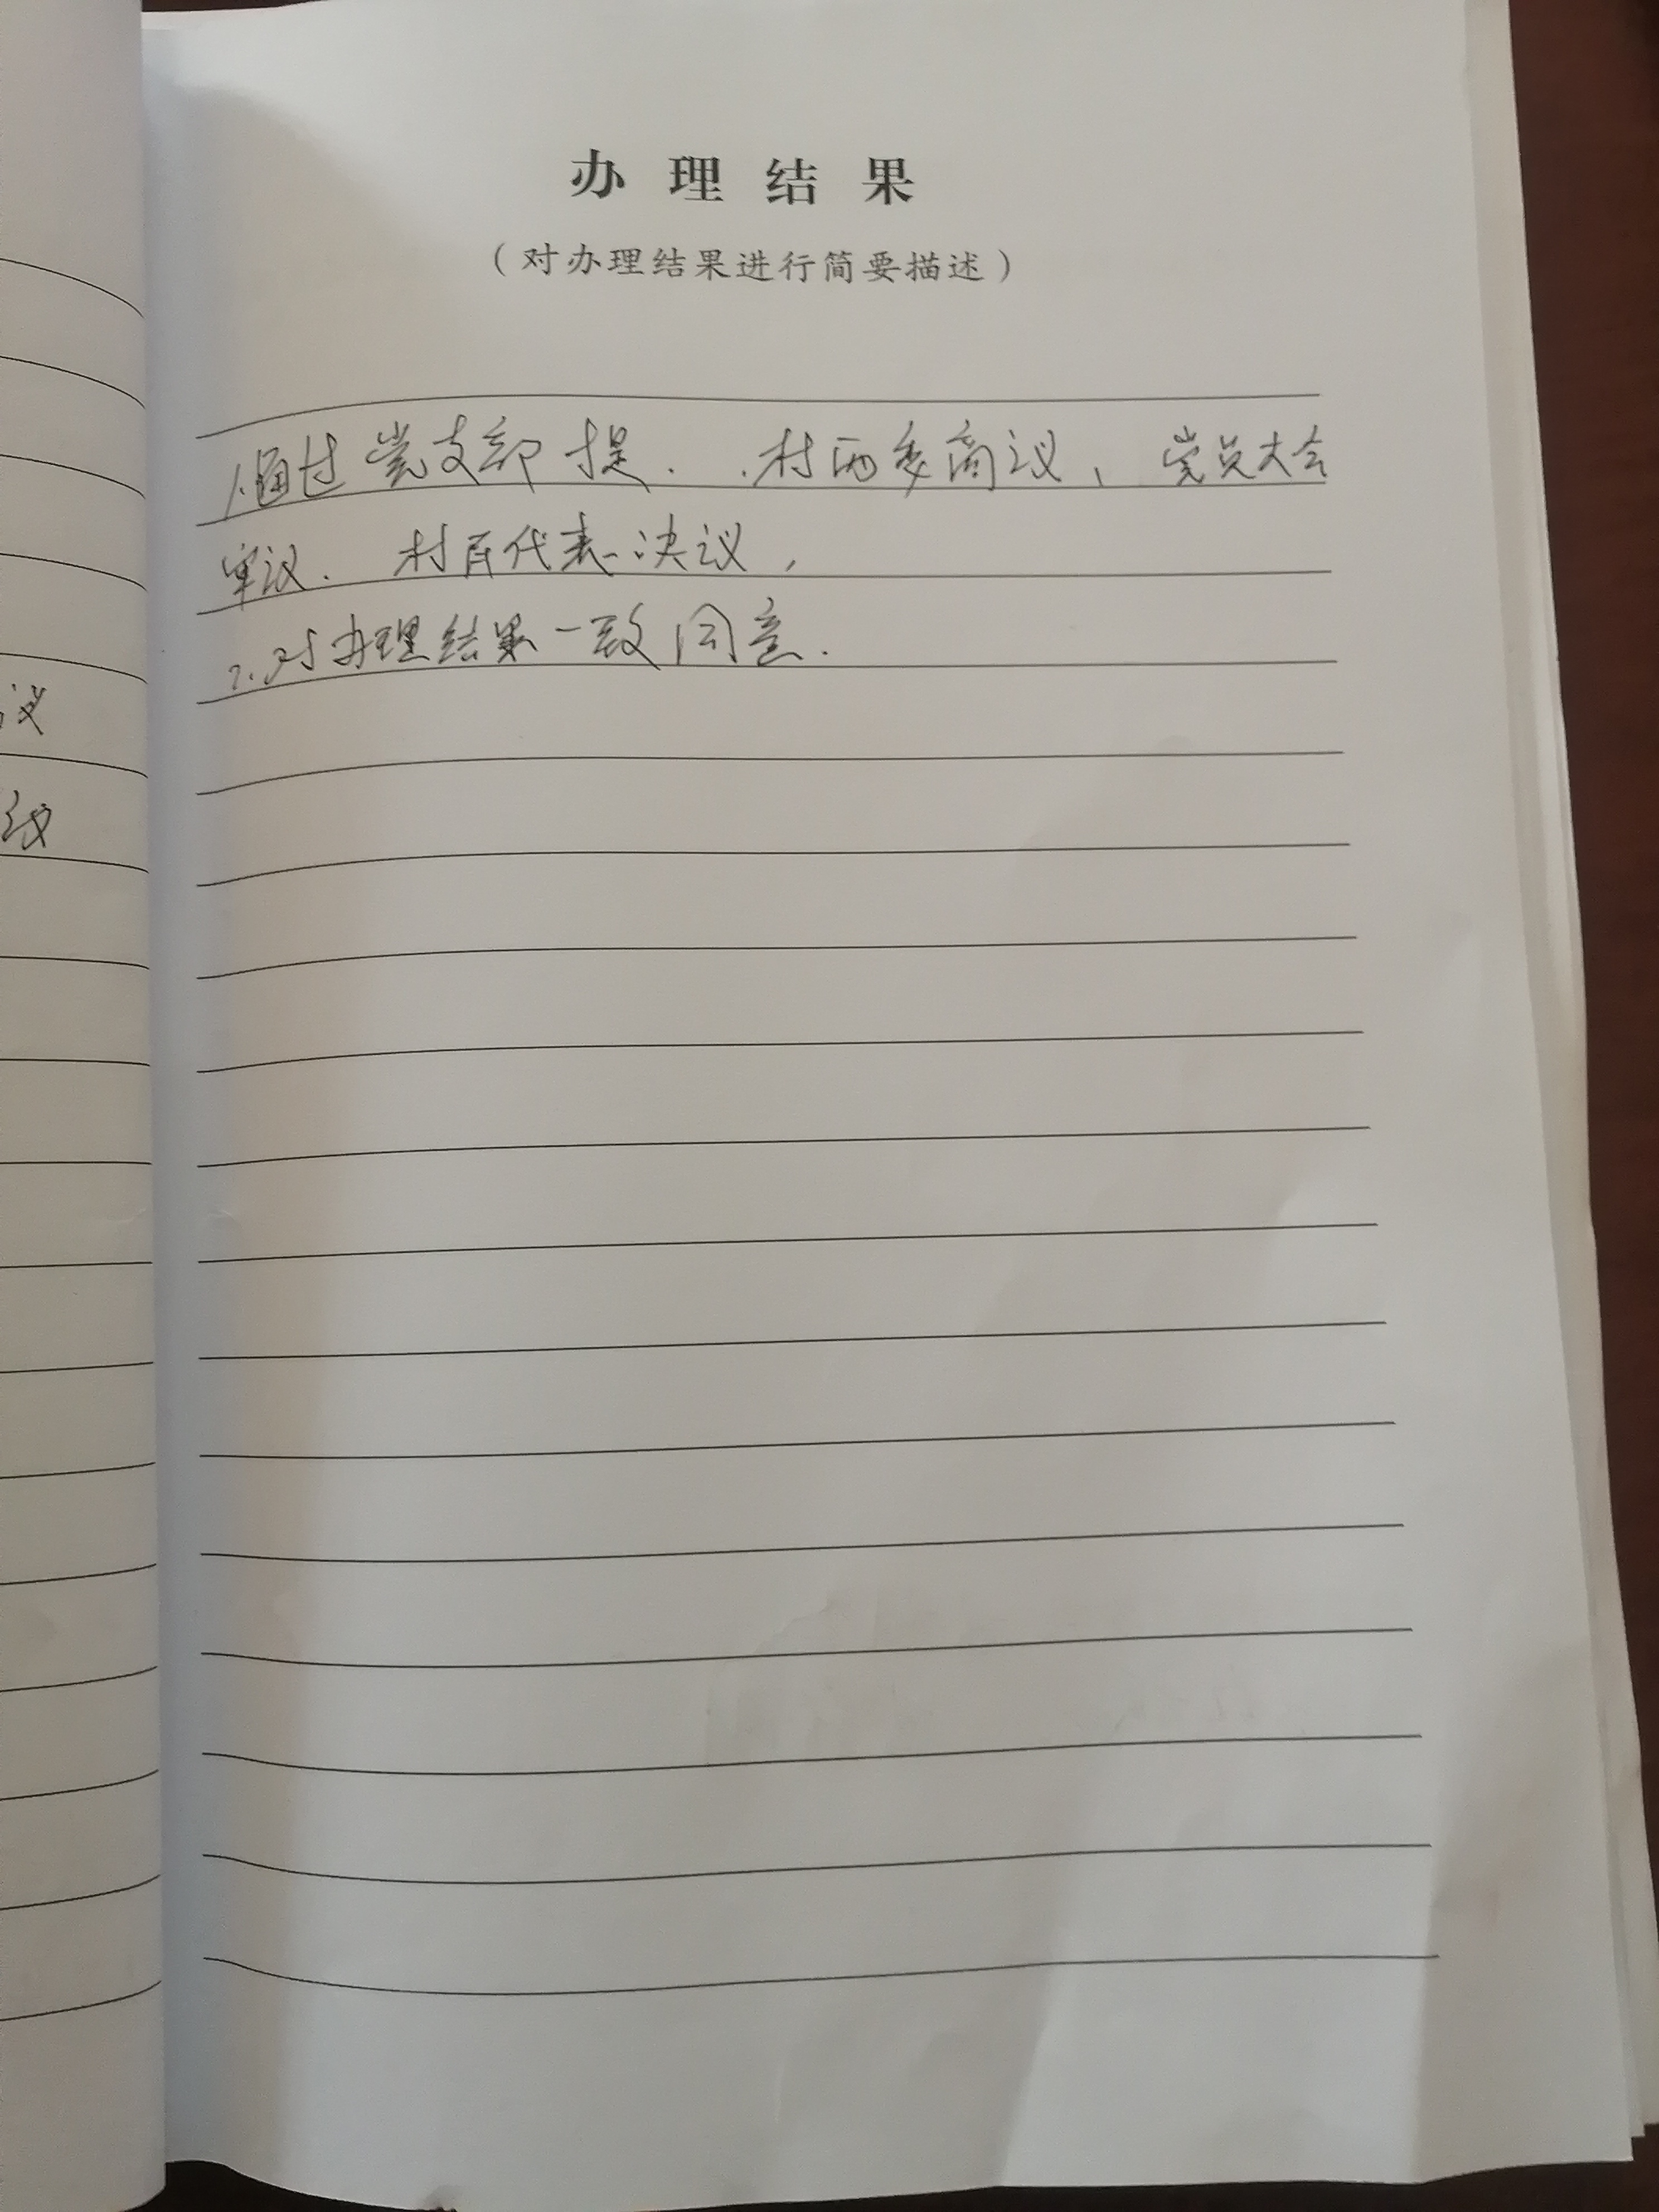 办理结果
（对办理结果进行简要描述）
1.通过党支部提、村两委商议、党员大会
审议、村民代表决议，
2.对办理结果一致同意.
议